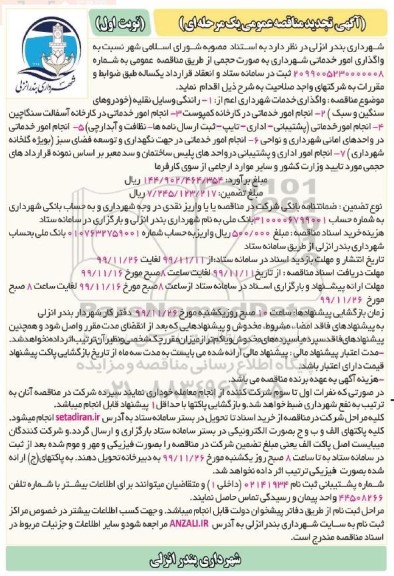 (آگهی تجدید مناقصه عمومی یک مرحله ای)
(نوبت اول)
شهرداری بندر انزلی
شهرداری بندر انزلی در نظر دارد به استناد مصوبه شورای اسلامی شهر نسبت به
واگذاری امور خدماتی شهرداری به صورت حجمی از طریق مناقصه عمومی به شماره
۲۰۹۹۰۰۵۲۳۰۰۰۰۰۰۸ ثبت در سامانه ستاد و انعقاد قرارداد یکساله طبق ضوابط و
مقررات به شرکتهای واجد صلاحیت به شرح ذیل اقدام نماید.
موضوع مناقصه : واگذاری خدمات شهرداری اعم از: ۱- رانندگی وسایل نقلیه (خودروهای
سنگین و سبک) ۲- انجام امور خدماتی در کارخانه کمپوست ۳- انجام امور خدماتی در کارخانه آسفالت سنگاچین
۴- انجام امور خدماتی (پشتیبانی- اداری- تایپ- ثبت ارسال نامه ها- نظافت و آبدارچی) ۵- انجام امور خدماتی
در واحدهای امانی شهرداری و نواحی ۶- انجام امور خدماتی در جهت نگهداری و توسعه فضای سبز (بویژه گلخانه
شهرداری) ۷- انجام امور اداری و پشتیبانی در واحد های پلیس ساختمان و سد معبر بر اساس نمونه قرارداد های
حجمی مورد تایید وزارت کشور و سایر موارد ارجاعی از سوی کارفرما
مبلغ برآورد: ۱۴۴/۹۰۲/۴۶۴/۳۵۴ ریال
مبلغ تضمین: ۷/۲۴۵/۱۲۳/۲۱۷ ریال
نوع تضمین : ضمانتنامه بانکی شرکت در مناقصه یا یا واریز نقدی در وجه شهرداری و به حساب بانکی شهرداری
به شماره حساب ۳۱۰۰۰۰۶۷۹۹۰۰۱ بانک ملی به نام شهرداری بندر انزلی و بارگزاری در سامانه ستاد
هزینه خرید اسناد مناقصه : مبلغ ۵۰۰/۰۰۰ ریال واریز به حساب شماره ۰۱۰۷۶۳۲۷۵۹۰۰۱ بانک ملی به حساب
شهرداری بندر انزلی از طریق سامانه ستاد
تاریخ انتشار و مهلت بازدید اسناد در سامانه ستاد: از ۹۹/۱۱/۱۱ لغایت ۹۹/۱۱/۲۶
مهلت دریافت اسناد مناقصه : از تاریخ ۹۹/۱۱/۱۱ لغایت ساعت ۸ صبح مورخ ۹۹/۱۱/۱۶
مهلت ارائه پیشنهاد و بارگزاری اسناد در سامانه ستاد از ساعت ۸ صبح مورخ ۹۹/۱۱/۱۶ لغایت ساعت ۸ صبح
مورخ ۹۹/۱۱/۲۶
زمان بازگشایی پیشنهادها: ساعت ۱۰ صبح روز یکشنبه مورخ ۹۹/۱۱/۲۶ دفتر کار شهردار بندر انزلی
به پیشنهادهای فاقد امضاء، مشروط، مخدوش و پیشنهادهایی که بعد از انقضای مدت مقرر واصل شود و همچنین
پیشنهادهای فاقد سپرده یا سپرده های مخدوش و یا کمتر از میزان مقرر، چک شخصی و نظیر آن ترتیب اثر داده نخواهد شد.
-مدت اعتبار پیشنهاد مالی : پیشنهاد مالی ارائه شده می بایست به مدت سه ماه از تاریخ بازگشایی پاکت پیشنهاد
قیمت دارای اعتبار باشد.
-هزینه آگهی به عهده برنده مناقصه می باشد.
در صورتی که نفرات اول تا سوم شرکت کننده از انجام معامله خودداری نمایند سپرده شرکت در مناقصه آنان به
ترتیب به نفع شهرداری ضبط خواهد شد و بازگشایی پاکتها با حداقل ۱ پیشنهاد قابل انجام میباشد.
کلیه مراحل شرکت در مناقصه از خرید اسناد تا تحویل در بستر سامانه ستاد به آدرس setadiran.ir انجام میشود.
کلیه پاکتهای الف و ب و ج بصورت الکترونیکی در بستر سامانه ستاد بارگزاری و ارسال گردد. و شرکت کنندگان
میبایست اصل پاکت الف یعنی مبلغ تضمین شرکت در مناقصه را بصورت فیزیکی و مهر و موم شده بعد از ثبت
در سامانه ستاد به تا ساعت ۸ صبح روز یکشنبه مورخ ۹۹/۱۱/۲۶ به دبیرخانه تحویل دهند. به پاکتهای (ج) ارائه
شده بصورت فیزیکی ترتیب اثر داده نخواهد شد.
شماره پشتیبانی ثبت نام ۰۲۱۴۱۹۳۴ (داخلی ۱) و متقاضیان میتوانند برای اطلاعات بیشتر با شماره تلفن
۴۴۵۰۸۲۶۶ واحد پیمان و رسیدگی تماس حاصل نمایند.
مراحل ثبت نام از طریق دفاتر پیشخوان دولت قابل انجام میباشد. و جهت کسب اطلاعات بیشتر در خصوص مراکز
ثبت نام به سایت شهرداری بندر انزلی به آدرس ANZALI.IR مراجعه شود و سایر اطلاعات و جزئیات مربوط در
اسناد مناقصه مندرج است.
شهرداری بندر انزلی